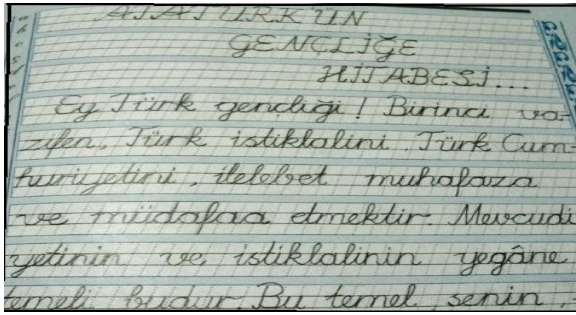 ATATÜRK'ÜN
GENÇLİĞE
HİTABESİ...
Ey Türk gençliği! Birinci va-
zifen, Türk istiklalini, Türk Cum-
huriyetini, ilelebet muhafaza
ve müdafaa etmektir. Mevcudi
yetinin ve istiklalinin yegâne
temeli budur. Bu temel, senin,